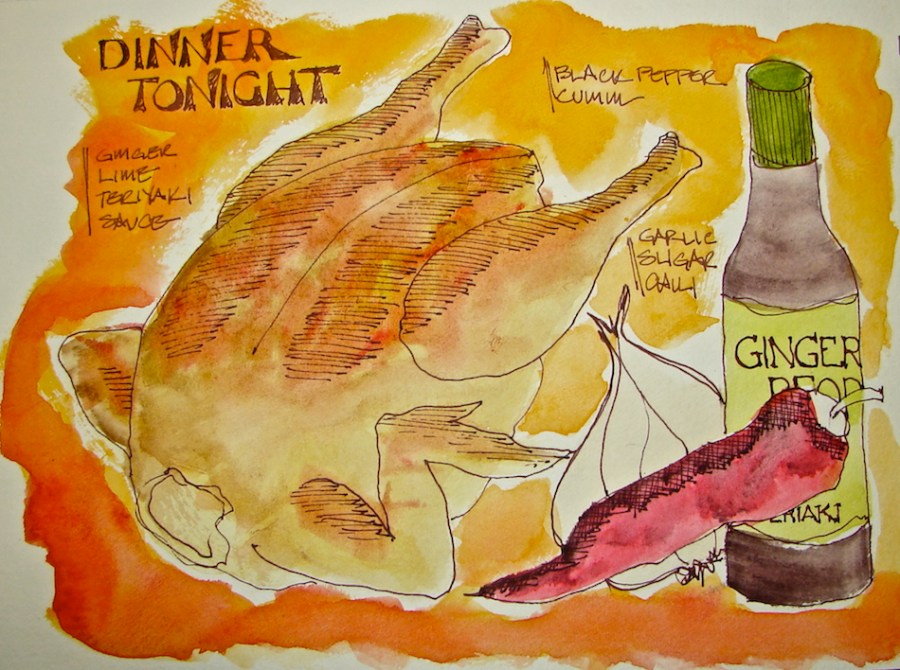 DINNER
TONIGHT
GINGER
LIME
TERIYAKI
SAUCE
BLACK PEPPER
CUMIN
GARLIC
SUGAR
GINGER
ERIAKI